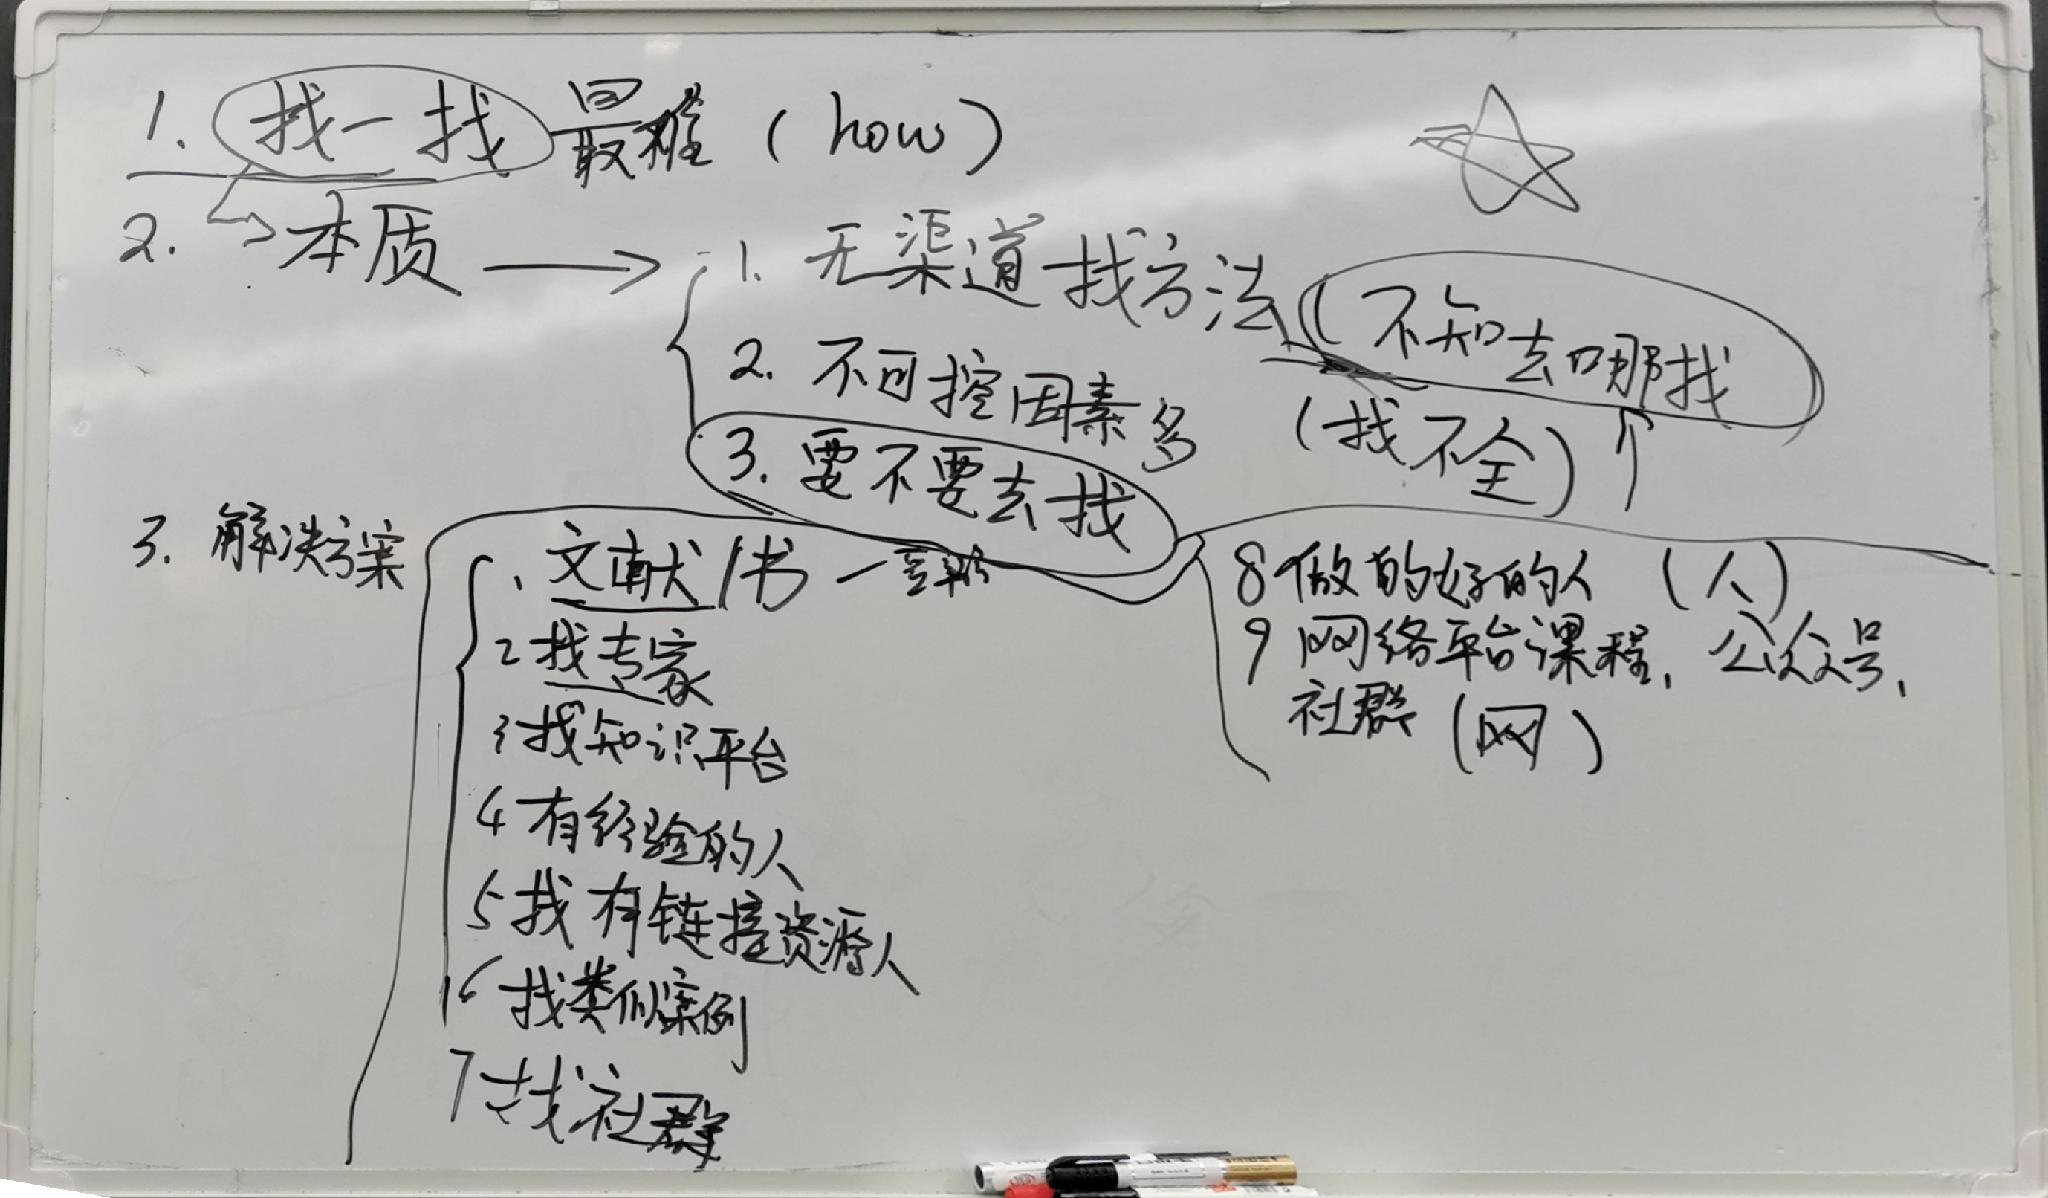 1. 找一找 最难 (how)
2. 本质
1. 无渠道找方法 (不知去哪找
2. 不可控因素多 (找不全)
3. 要不要去找
3. 解决方案
1、文献/书 一
2 找专家
3 找知识平台
4 有经验的人
5 找有链接资源人
6 找类似案例
7 找社群
8 做的好的人 (人)
9 网络平台课程, 公众号,
社群 (网)